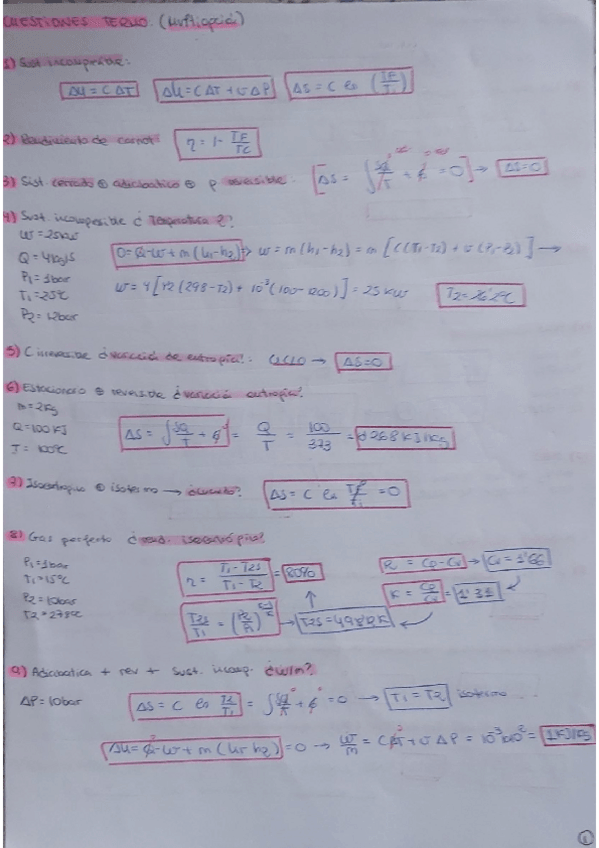 CUESTIONES TERMO. (Multiopción)
1) Sust incompresible:
ΔU = C ΔT   Δh = CΔT + υΔP   ΔS = C ln (TF/T1)
2) Rendimiento de carnot   η = 1 - TF/TC
3) Sist cerrado ⊕ adiabatico ⊕ p reversible. [ΔS = ∫ δQ/T + σ = 0] → ΔS=0
4) Sust. incompresible ¿Temperatura 2?
W = 25kW
Q = 4kg/s
P1 = 1bar
T1 = 25ºC
P2 = 12bar
0 = Q - W + m(h1-h2) → W = m(h1-h2) = m [C(T1-T2) + υ(P1-P2)] →
W = 4[4'2(298-T2) + 10⁻³(100-1200)] = 25 kW
5) C. inversible ¿variación de entropia?: CICLO → ΔS=0
6) Estacionario ⊕ reversible ¿variació entropia?
m = 2Kg
Q = 100KJ
T = 100ºC
ΔS = ∫ δQ/T + σ = Q/T = 100/373 = 0'268 KJ/Kg
7) Isoentropico ⊕ isotermo → ΔS = C ln = 0
8) Gas perfecto ¿rend. isoentrópico?
P1 = 1bar
T1 = 15ºC
P2 = 10bar
T2 = 278ºC
η = T1-T2S/T1-T2 = 80%
R = CP - CV → CV =
K = CP/CV = 1'31
9) Adiabatica + rev + sust. incomp. ¿W/m?
ΔP = 10bar
ΔS = C ln T2/T1 = ∫ δQ/T + σ = 0 → T1 = T2 isotermo
ΔU = Q - W + m(h1-h2) = 0 → W/m = CΔT + υΔP = = 1KJ/Kg
1